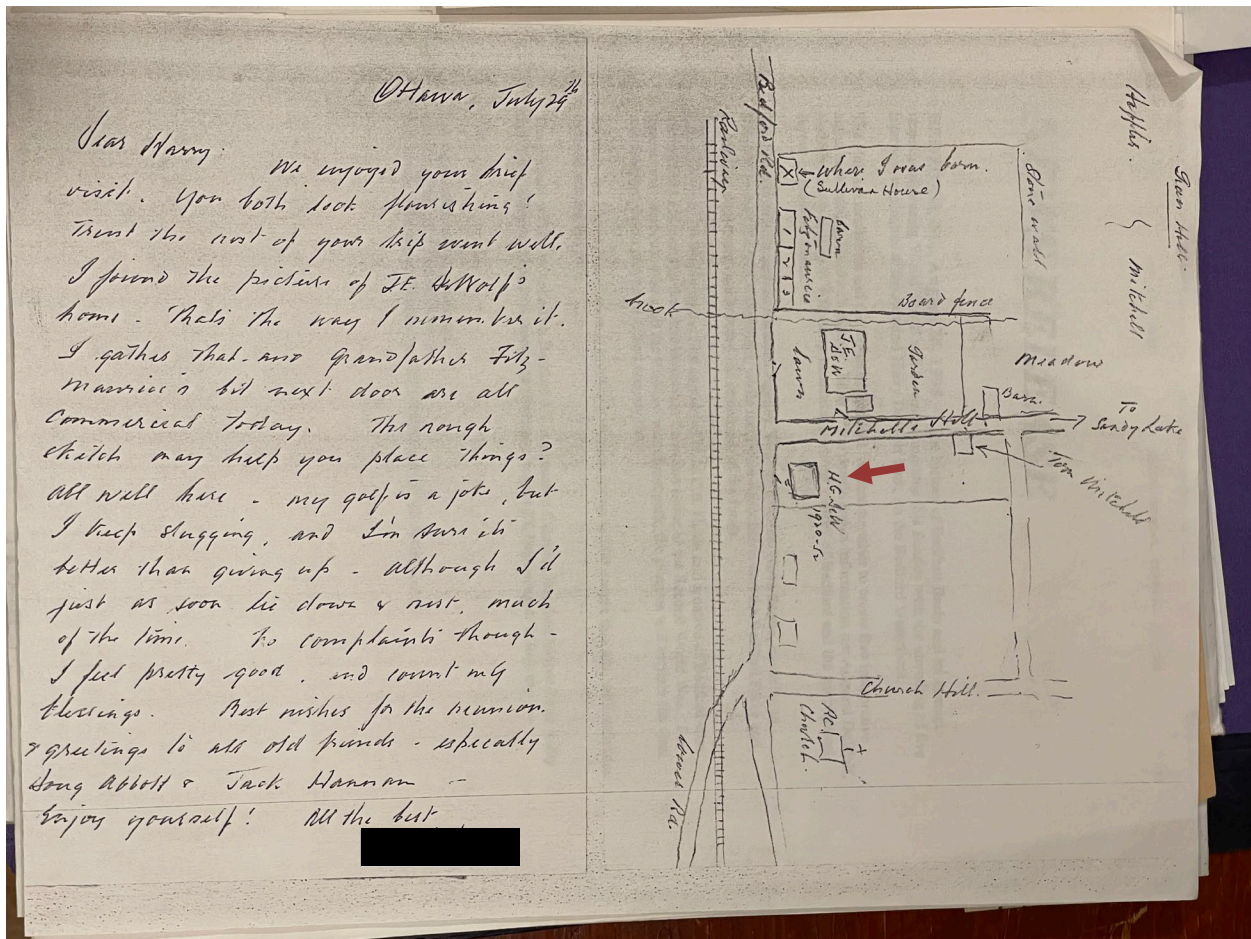 Ottawa, July 29th
Dear Harry.
We enjoyed your brief
visit. You both look flourishing!
Trust the rest of your trip went well.
I found the picture of J.E. DeWolf's
home - That's the way I remember it.
I gather that and Grandfather Fitz-
maurice's bit next door are all
commercial today. The rough
sketch may help you place things?
All well here - my golf is a joke, but
I keep slugging, and I'm sure it's
better than giving up - although I'd
just as soon lie down & rest, much
of the time. No complaints though -
I feel pretty good, and count my
blessings. Best wishes for the reunion.
& greetings to all old friends - especially
Doug Abbott & Jack Hannan -
Enjoy yourself! All the best
Mitchell
Stone wall
Bedford Rd.
Railway
X
where I was born.
(Sullivan House)
barn
Fitzmaurice
1 2 3
brook
Board fence
J.E.
DeW
lawn
Garden
Meadow
Barn.
Mitchells Hill.
To
Sandy Lake
Tom Mitchell
H.G. DeW
1920-52
Church Hill.
R.C.
Church.
Lower Rd.